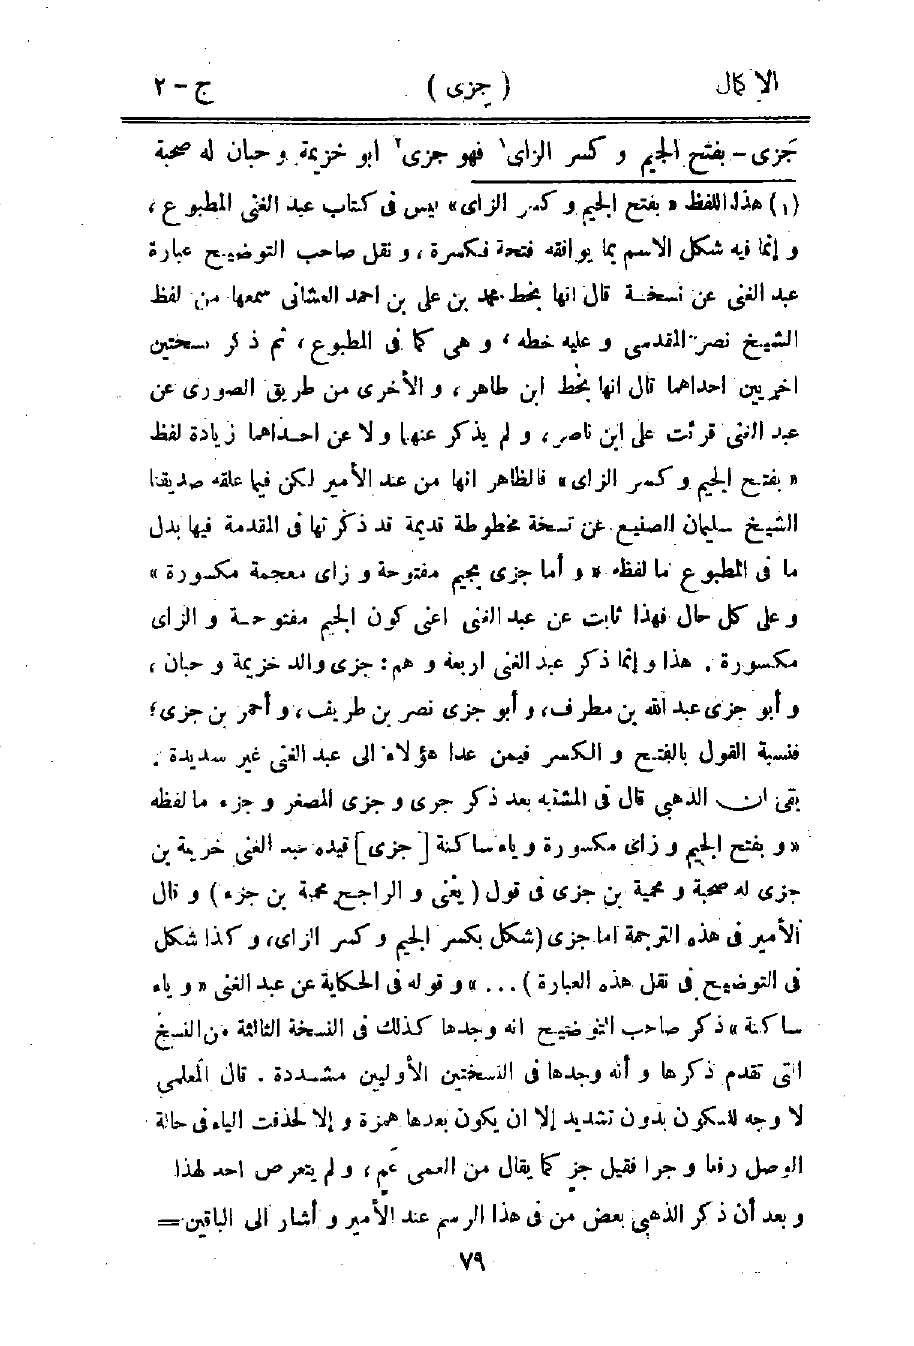 الإكمال ( جزى ) ج – ٢
جَزى – بفتح الجيم و كسر الزاى١ فهو جزى٢ ابو خزيمة و حبان له صحبة
(١) هذا اللفظ « بفتح الجيم و كسر الزاى» ليس فى كتاب عبد الغنى المطبوع،
و إنما فيه شكل الاسم بما يوافقه فتحة فكسرة، و نقل صاحب التوضيح عبارة
عبد الغنى عن نسخة قال انها بخط محمد بن على بن احمد العشانى سمعها من لفظ
الشيخ نصر المقدسى و عليه خطه، و هى كما فى المطبوع، ثم ذكر نسختين
اخريين احداهما قال انها بخط ابن طاهر، و الأخرى من طريق الصورى عن
عبد الغنى قرئت على ابن ناصر، و لم يذكر عنها ولا عن احداهما زيادة لفظ
« بفتح الجيم و كسر الزاى» فالظاهر انها من عند الأمير لكن فيما علقه صديقنا
الشيخ سليمان الصنيع عن نسخة مخطوطة قديمة قد ذكرتها فى المقدمة فيها بدل
ما فى المطبوع ما لفظه « و أما جزى بجيم مفتوحة و زاى معجمة مكسورة»
و على كل حال فهذا ثابت عن عبد الغنى اعنى كون الجيم مفتوحة و الزاى
مكسورة . هذا و إنما ذكر عبد الغنى اربعة و هم: جزى والد خزيمة و حبان،
و أبو جزى عبد الله بن مطرف، و أبو جزى نصر بن طريف، و أحمر بن جزى؛
فنسبة القول بالفتح و الكسر فيمن عدا هؤلاء الى عبد الغنى غير سديدة .
بقى ان الذهبى قال فى المشتبه بعد ذكر جرى و جزى المصغر و جزء ما لفظه
« و بفتح الجيم و زاى مكسورة و ياء ساكنة [جزى] قيده عبد الغنى خزيمة بن
جزى له صحبة و محمية بن جزى فى قول ( يعنى و الراجح محمية بن جزء ) و قال
الأمير فى هذه الترجمة اما جزى (شكل بكسر الجيم و كسر الزاى، و كذا شكل
فى التوضيح فى نقل هذه العبارة ) ... » و قوله فى الحكاية عن عبد الغنى « و ياء
ساكنة » ذكر صاحب التوضيح انه وجدها كذلك فى النسخة الثالثة من النسخ
التى تقدم ذكرها و أنه وجدها فى النسختين الأوليين مشددة . قال المعلمى
لا وجه للسكون بدون تشديد إلا ان يكون بعدها همزة و إلا لحذفت الياء فى حالة
الوصل رفعا و جرا فقيل جزٍ كما يقال من العمى عَمٍ، و لم يتعرض احد لهذا
و بعد أن ذكر الذهبى بعض من فى هذا الرسم عند الأمير و أشار الى الباقين =
٧٩